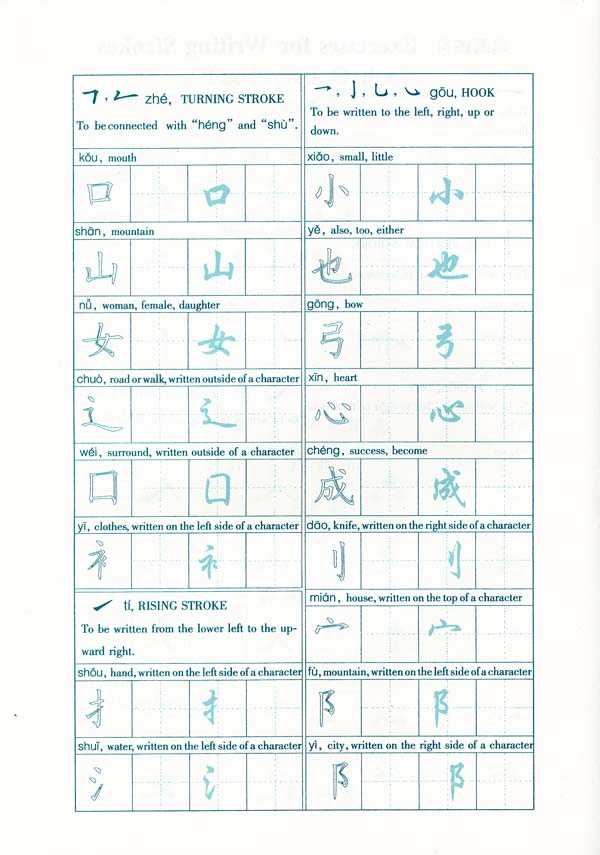 zhé, TURNING STROKE
To be connected with "héng" and "shù".
kǒu, mouth
口 口
shān, mountain
山 山
nǚ, woman, female, daughter
女 女
chuò, road or walk, written outside of a character
辶 辶
wéi, surround, written outside of a character
囗 囗
yī, clothes, written on the left side of a character
衤 衤
tí, RISING STROKE
To be written from the lower left to the up-
ward right.
shǒu, hand, written on the left side of a character
扌 扌
shuǐ, water, written on the left side of a character
氵 氵
gōu, HOOK
To be written to the left, right, up or
down.
xiǎo, small, little
小 小
yě, also, too, either
也 也
gōng, bow
弓 弓
xīn, heart
心 心
chéng, success, become
成 成
dāo, knife, written on the right side of a character
刂 刂
mián, house, written on the top of a character
宀 宀
fù, mountain, written on the left side of a character
阝 阝
yì, city, written on the right side of a character
阝 阝